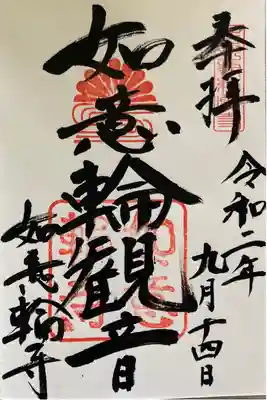 奉拝
令和二年
九月十四日
如意輪観音
如意輪寺